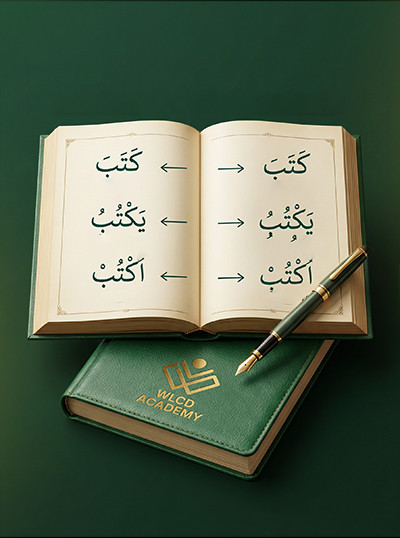 كَتَبَ
يَكْتُبُ
اَكْتُبْ
كَتَبَ
يَكْتُبُ
اَكْتُبْ
WLCD
ACADEMY